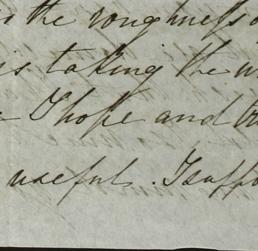 is the roughness o
is taking the w
I hope and tr
useful. I suppo